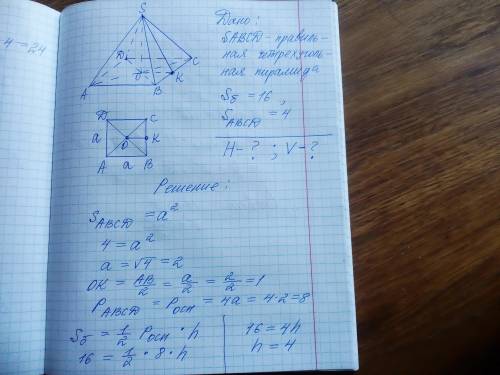 4=24
S
D
C
O
K
A
B
D
C
a
O
K
A
a
B
Дано:
SABCD-правиль-
ная четрехуголь-
ная пирамида
Sб = 16,
SABCD = 4
H-? ; V-?
Решение:
SABCD = a²
4 = a²
a = √4 = 2
OK = AB/2 = a/2 = 2/2 = 1
PABCD = Pосн = 4a = 4·2 = 8
Sб = 1/2 Pосн · h
16 = 1/2 · 8 · h
16 = 4h
h = 4